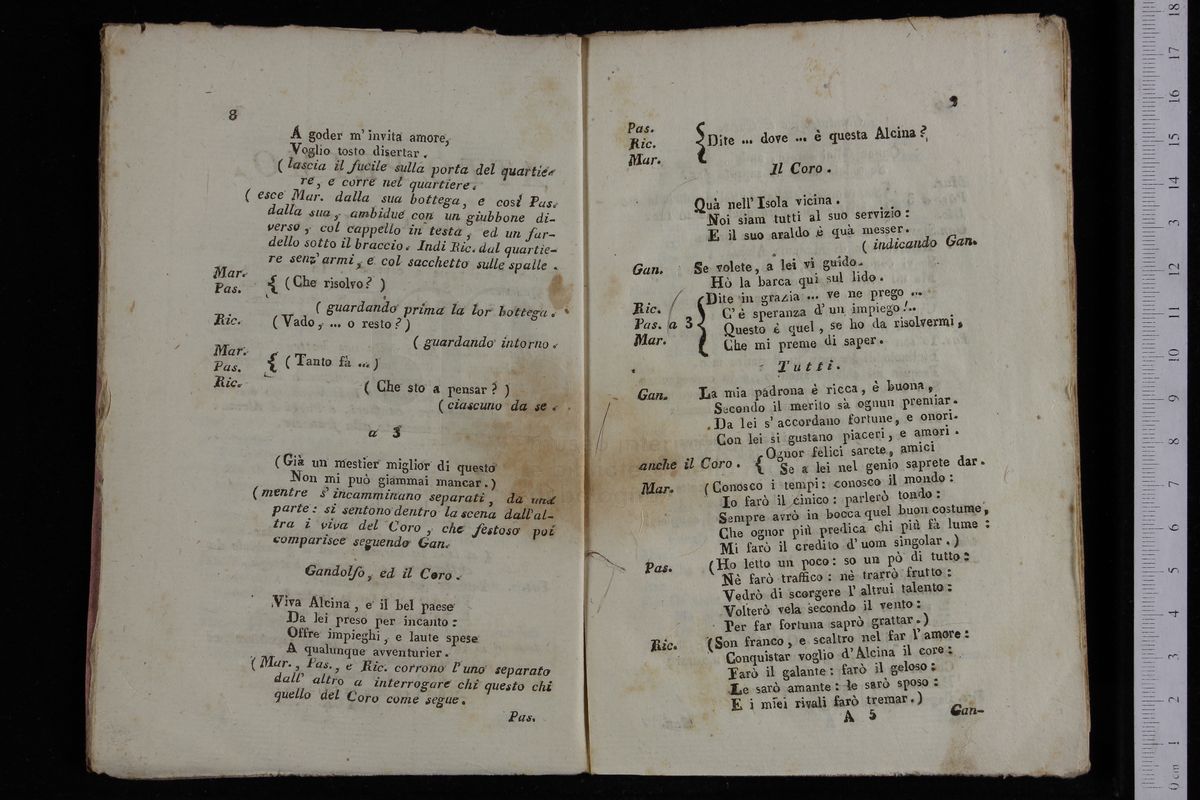 8
A goder m'invita amore,
Voglio tosto disertar.
(lascia il fucile sulla porta del quartie-
re, e corre nel quartiere.
(esce Mar. dalla sua bottega, e così Pas.
dalla sua, ambidue con un giubbone di-
verso, col cappello in testa, ed un far-
dello sotto il braccio. Indi Ric. dal quartie-
re senz'armi, e col sacchetto sulle spalle.
Mar.
Pas. { (Che risolvo?)
(guardando prima la lor bottega.
Ric. (Vado, ... o resto?)
(guardando intorno.
Mar.
Pas. { (Tanto fà ...)
Ric. (Che sto a pensar?)
(ciascuno da se.
a 3
(Già un mestier miglior di questo
Non mi può giammai mancar.)
(mentre s'incamminano separati, da una
parte: si sentono dentro la scena dall'al-
tra i viva del Coro, che festoso poi
comparisce seguendo Gan.
Gandolfo, ed il Coro.
Viva Alcina, e il bel paese
Da lei preso per incanto:
Offre impieghi, e laute spese
A qualunque avventurier.
(Mar., Pas., e Ric. corrono l'uno separato
dall' altro a interrogare chi questo chi
quello del Coro come segue.
Pas.
9
Pas.
Ric. { Dite ... dove ... è questa Alcina?
Mar.
Il Coro.
Quà nell'Isola vicina.
Noi siam tutti al suo servizio:
E il suo araldo è quà messer.
(indicando Gan.
Gan. Se volete, a lei vi guido.
Hò la barca qui sul lido.
Dite in grazia ... ve ne prego ...
Ric. C'è speranza d'un impiego!..
Pas. a 3 { Questo è quel, se ho da risolvermi,
Mar. Che mi preme di saper.
Tutti.
Gan. La mia padrona è ricca, è buona,
Secondo il merito sà ognun premiar.
Da lei s'accordano fortune, e onori.
Con lei si gustano piaceri, e amori.
Ognor felici sarete, amici
anche il Coro. { Se a lei nel genio saprete dar.
Mar. (Conosco i tempi: conosco il mondo:
Io farò il cinico: parlerò tondo:
Sempre avrò in bocca quel buon costume,
Che ognor più predica chi più fà lume:
Mi farò il credito d'uom singolar.)
Pas. (Ho letto un poco: so un pò di tutto:
Nè farò traffico: nè trarrò frutto:
Vedrò di scorgere l'altrui talento:
Volterò vela secondo il vento:
Per far fortuna saprò grattar.)
Ric. (Son franco, e scaltro nel far l'amore:
Conquistar voglio d'Alcina il core:
Farò il galante: farò il geloso:
Le sarò amante: le sarò sposo:
E i miei rivali farò tremar.)
A 5 Gan-
0 cm 1 2 3 4 5 6 7 8 9 10 11 12 13 14 15 16 17 18